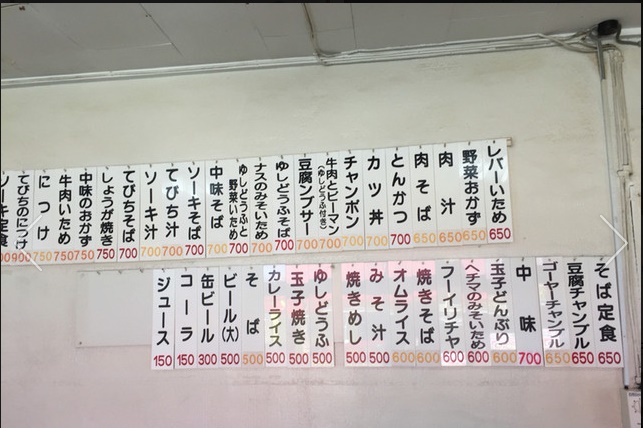 レバーいため 650
野菜おかず 650
肉汁 650
肉そば 650
とんかつ 700
カツ丼 700
チャンポン 700
牛肉とピーマン(ゆしどうふ付き) 700
豆腐ンブサー 700
ゆしどうふそば 700
ナスのみそいため 700
ゆしどうふと野菜いため 700
中味そば 700
ソーキそば 700
てびち汁 700
ソーキ汁 700
てびちそば 750
しょうが焼き 750
中味のおかず 750
牛肉いため 750
につけ 750
てびちのにつけ 900
ソーキ定食
そば定食 650
豆腐チャンプル 650
ゴーヤーチャンプル 650
中味 700
玉子どんぶり 600
ヘチマのみそいため 600
フーイリチャ 600
焼きそば 600
オムライス 600
みそ汁 500
焼きめし 500
ゆしどうふ 500
玉子焼き 500
カレーライス 500
そば 500
ビール(大) 500
缶ビール 300
コーラ 150
ジュース 150